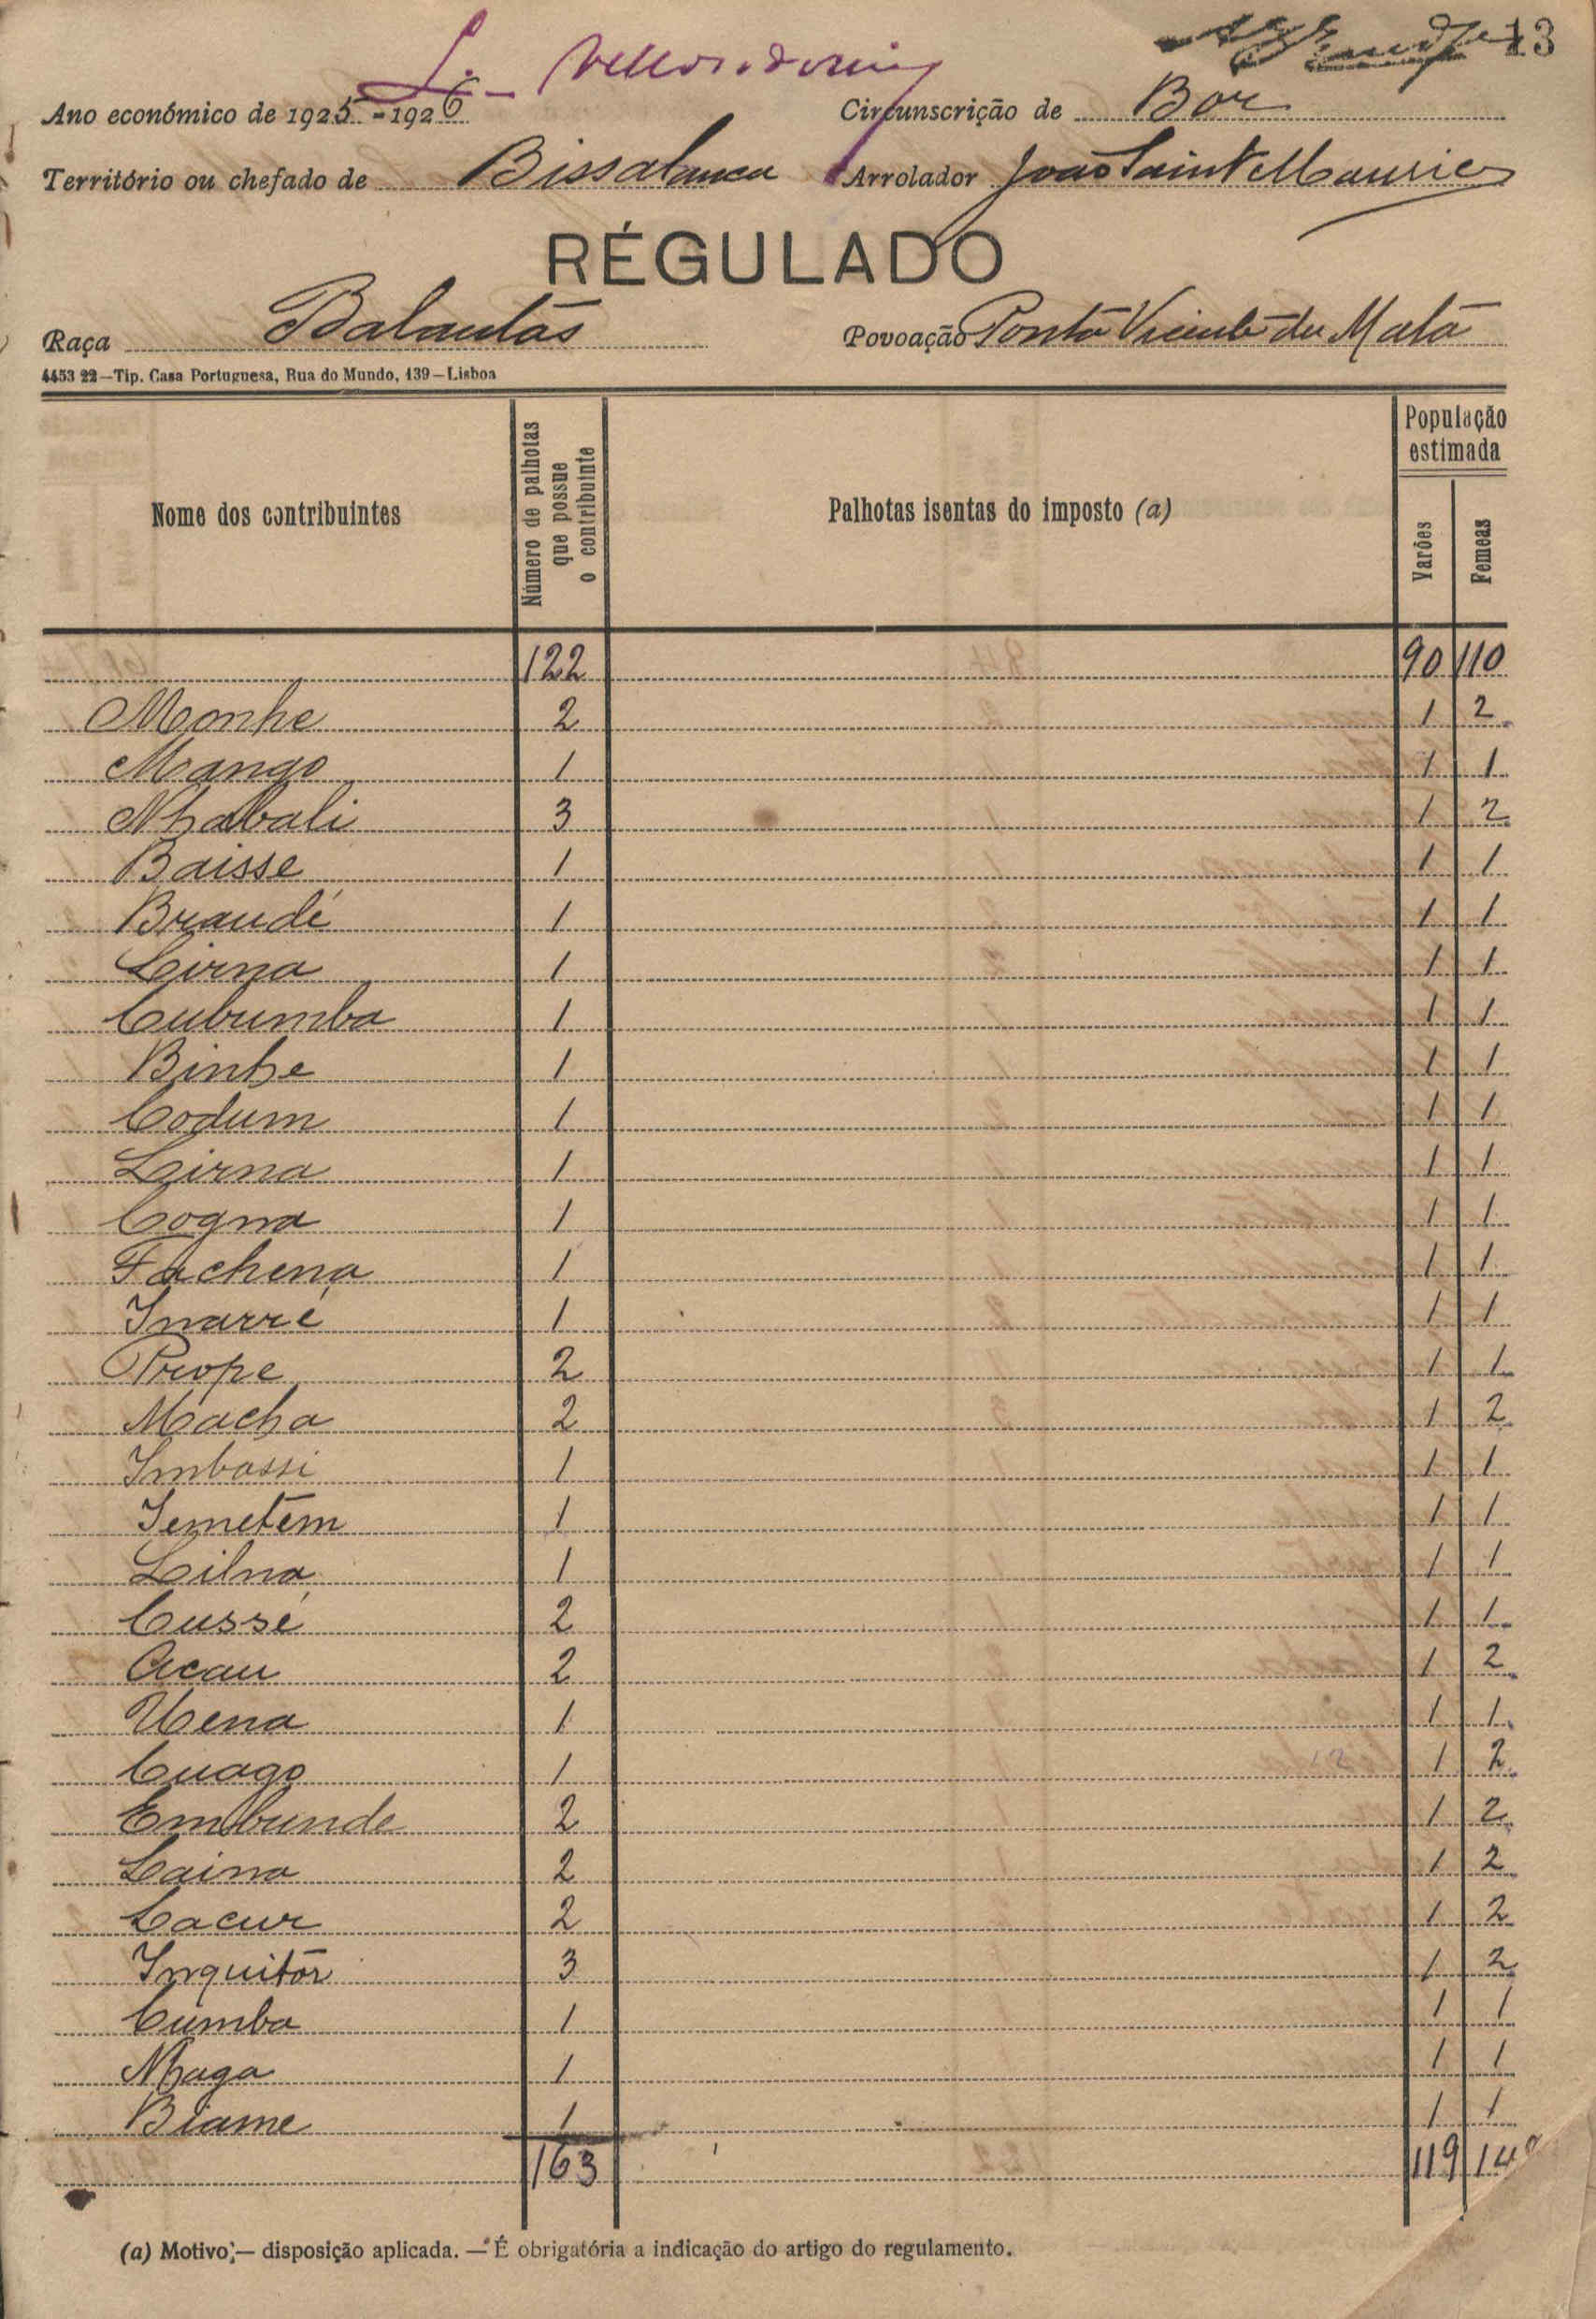 13
Ano económico de 1925-1926
Circunscrição de Bor
Território ou chefado de Bissalanca
Arrolador João Saint Maurice
RÉGULADO
Raça Balantas
Povoação Ponta Vicente da Mata
4453 22—Tip. Casa Portuguesa, Rua do Mundo, 139—Lisboa
Nome dos contribuintes
Número de palhotas que possue o contribuinte
Palhotas isentas do imposto (a)
População estimada
Varões
Femeas
122 90 110
Monhe 2 1 2
Mango 1 1 1
Nhabali 3 1 2
Baisse 1 1 1
Braudé 1 1 1
Lirna 1 1 1
Cubumba 1 1 1
Binhe 1 1 1
Codum 1 1 1
Lirna 1 1 1
Cogna 1 1 1
Fachena 1 1 1
Inarré 1 1 1
Prope 2 1 1
Macha 2 1 2
Imbassi 1 1 1
Iemetem 1 1 1
Lilna 1 1 1
Cussé 2 1 1
Acau 2 1 2
Uena 1 1 1
Cuago 1 1 2
Embunde 2 1 2
Laina 2 1 2
Cacur 2 1 2
Inquitor 3 1 2
Cumba 1 1 1
Nhaga 1 1 1
Biame 1 1 1
163 119 14
(a) Motivo;— disposição aplicada. — É obrigatória a indicação do artigo do regulamento.